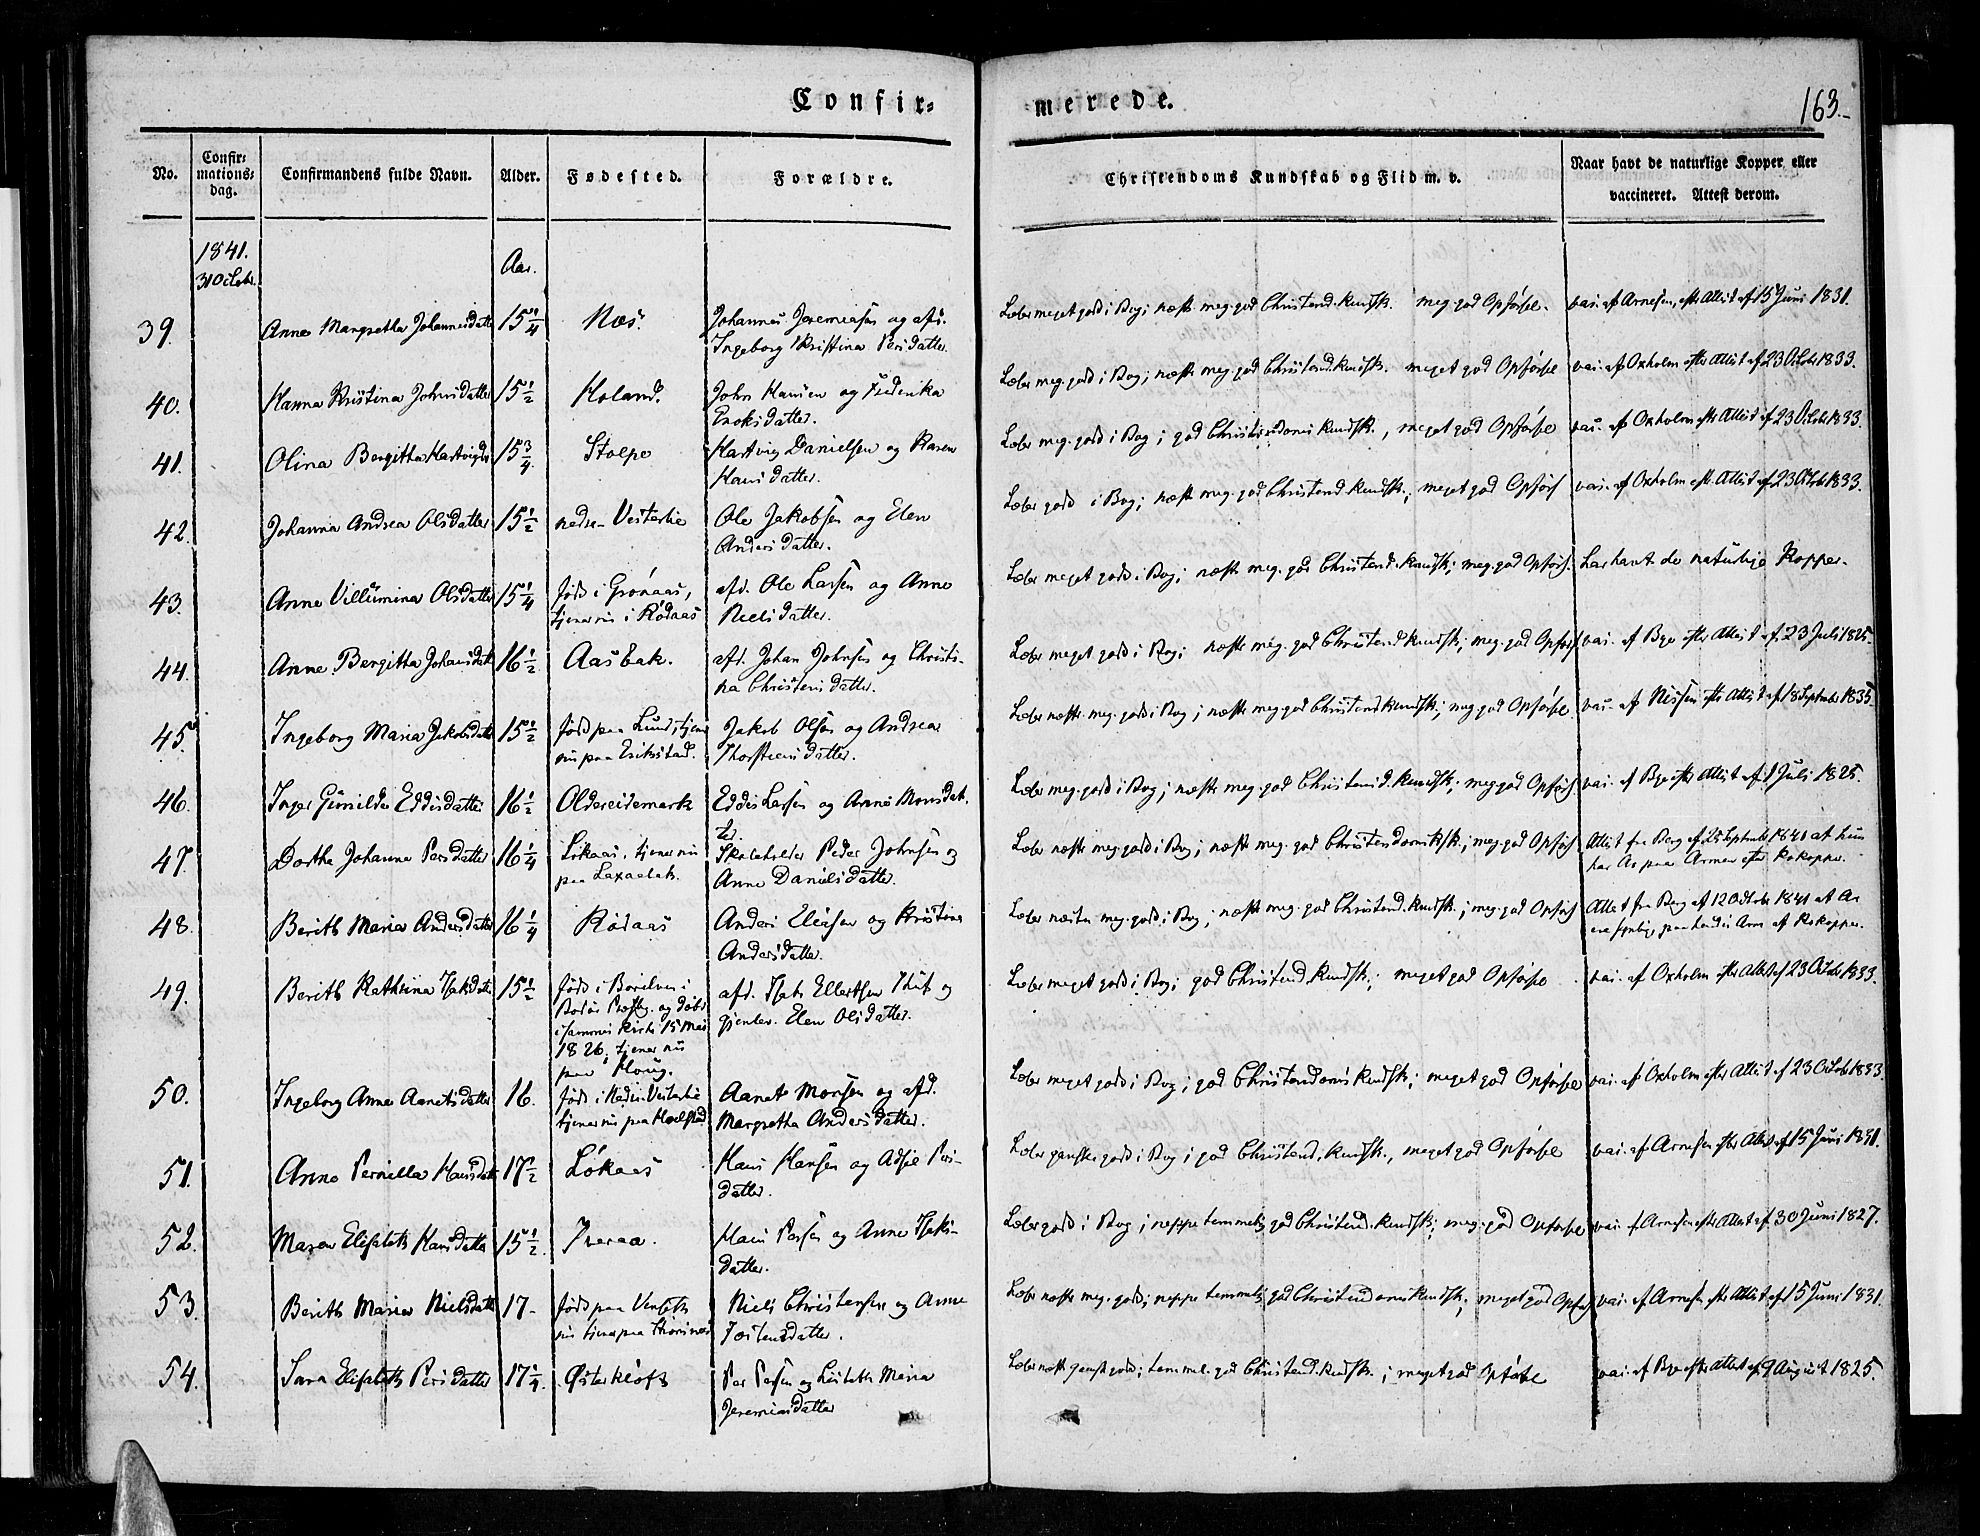 Confir=
merede.
163.
No.
Confir=
mations=
dag.
Confirmandens fulde Navn.
Alder.
Fødested.
Forældre.
Christendoms Kundskab og Flid m. v.
Naar havt de naturlige Kopper, eller
vaccineret. Attest derom.
1841.
31 Octobr.
Aar.
39. Anne Margretha Johannesdatter 15 1/4 Næs. Johannes Jeremiasen og afd.
Ingeborg Kristina Persdatter.
Læser meget godt i Bog; næsten meg. god Christend. Kundsk. meg. god Opførsel. vac. af Arnesen, efter Attest af 15 Juni 1831.
40. Hanna Kristina Johnsdatter 15 1/2 Holand. John Hansen og Frederika
Enoksdatter.
Læser meg. godt i Bog; næsten meg. god Christend. Kundsk. meget god Opførsel vac. af Oxholm efter Attest af 23 Octobr 1833.
41. Olina Bergitha Hartvigsd 15 3/4 Stolpe Hartvig Danielsen og Karen
Hansdatter.
Læser meg. godt i Bog; god Christendoms Kundsk., meget god Opførsel vac. af Oxholm efter Attest af 23 Octobr 1833.
42. Johanna Andrea Olsdatter 15 1/2 nedre Vesterlie Ole Jakobsen og Elen
Andersdatter.
Læser godt i Bog; næsten meg. god Christend. Kundsk.; meget god Opførs vac. af Oxholm efter Attest af 23 Octobr 1833.
43. Anne Villumina Olsdatter 15 1/4 født i Grønaas,
tjener nu i Rødaas
afd. Ole Larsen og Anne
Nielsdatter.
Læser meget godt i Bog; næsten meg. god Christend. Kundsk; meg. god Opførs. har havt de naturlige Kopper.
44. Anne Bergitha Johansdatt 16 1/2 Aasbak. afd. Johan Johnsen og Christi-
na Christensdatter.
Læser meget godt i Bog; næsten meg. god Christend. Kundsk; meg. god Opførs. vac. af Bye efter Attest af 23 Juli 1825.
45. Ingeborg Maria Jakobsdatt 15 1/2 født paa Lund, tjener
nu paa Erikstad.
Jakob Olsen og Andrea
Thorstensdatter.
Læser næsten meg. godt i Bog; næsten meg god Christend Kundsk; meg god Opførsel. vac. af Nissen efter Attest af 18 Septembr 1835.
46. Inger Gunilda Eddisdatter 16 1/2 Oldereidemark Eddis Larsen og Anne Monsdat-
ter.
Læser meg. godt i Bog; næsten meg. god Christend. Kundsk; meg god Opførs. vac. af Bye efter Attest af 1 Juli 1825.
47. Dorthe Johanna Persdatter 16 1/4 Løkaas, tjener nu
paa Laxaebak.
Skoleholder Peder Johnsen og
Anne Danielsdatter.
Læser næsten meg. godt i Bog; næsten meg. god Christendomsksk; meg. god Opførs Attest fra Berg af 25 Septembr 1841 at hun
har Ar paa Armen efter Kokopper.
48. Berith Maria Andersdatter 16 1/4 Rødaas Anders Eliasen og Kristina
Andersdatter.
Læser næsten meg. godt i Bog; næsten meg. god Christend. Kundsk; meg god Opførs Attest fra Berg af 12 Octobr 1841 at Ar
ere synlige paa hendes Arm af Kokopper.
49. Berith Kathrina Isaksdatter 15 1/2 født i
Bodøe Præstg. og døbt
i samme Kirke 15 Mai
1826; tjener nu
paa Haug.
afd. Isak Ellertsen og
gjenlev. Elen Olsdatter.
Læser meget godt i Bog; god Christend. Kundsk; meget god Opførsel vac. af Oxholm efter Attest af 23 Octobr 1833.
50. Ingeborg Anne Aanetsdatter 16. født i Nedre Vesterlie
tjener nu paa
Aanet Monsen og afd.
Margretha Andersdatter.
Læser meget godt i Bog; god Christendoms Kundsk; meget god Opførsel vac. af Oxholm efter Attest af 23 Octobr 1833.
51. Anne Pernilla Hansdatt 17 1/2 Løkaas Hans Hansen og Pers-
datter.
Læser ganske godt i Bog; god Christend. Kundsk., meget god Opførsel vac. af Arnesen efter Attest af 15 Juni 1831.
52. Maren Elisabeth Hansdatter 15 1/2. Hans Persen og Anne Isaks-
datter.
Læser godt i Bog; neppe temmelig god Christend. Kundsk; meg. god Opførsel vac. af Arnesen efter Attest af 30 Juni 1827.
53. Berith Maria Nielsdatt 17- født paa
nu tjener paa
Niels Christensen og Anne
Jostensdatter.
Læser næsten meg. godt; neppe temmelig god Christendoms Kundsk; meget god Opførs vac. af Arnesen efter Attest af 15 Juni 1831.
54. Sara Elisabeth Persdatter 17 1/4. Østerkløft Per Persen og Lisbeth Maria
Jeremiasdatter
Læser næst ganst godt; temmel. god Christend. Kundsk.; meget god Opførsel vac. af Bye efter Attest af 9 August 1825.